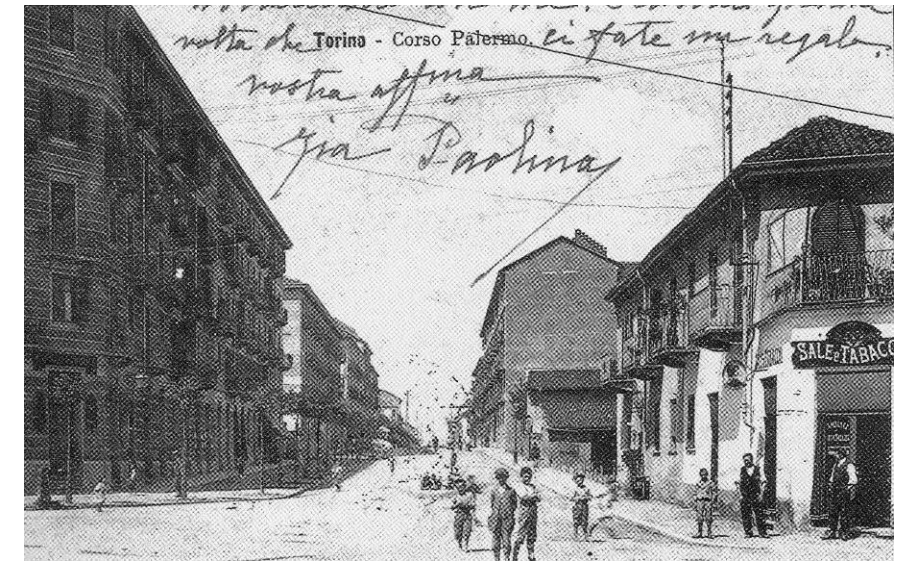 volta che Torino - Corso Palermo. ci fate un regalo.
vostra affma
Zia Paolina
SALE e TABACC